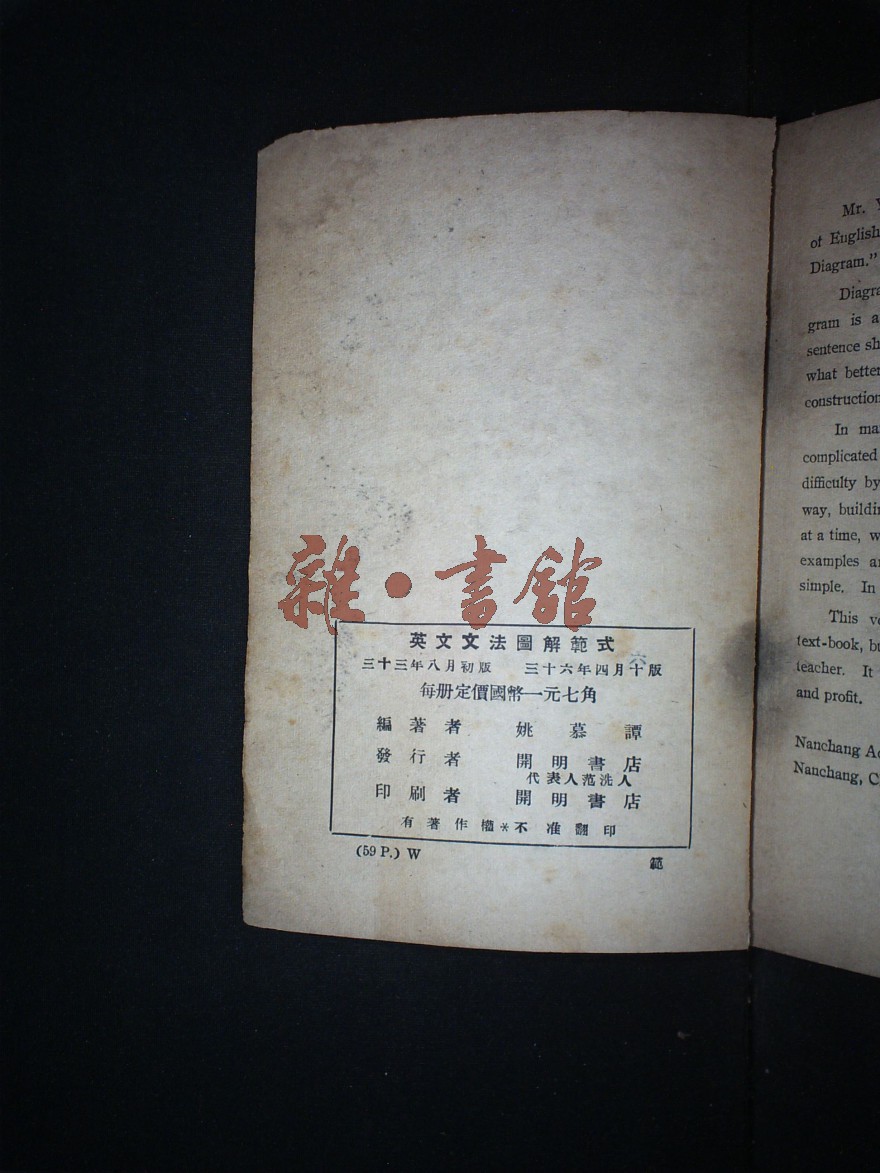 雜·書舘
英文文法圖解範式
三十三年八月初版 三十六年四月十版
每册定價國幣一元七角
編著者 姚慕譚
發行者 開明書店
代表人范洗人
印刷者 開明書店
有著作權*不准翻印
(59 P.) W 範
Mr.
of English
Diagram."
gram is a
sentence
what better
construction
In
complicated
difficulty by
way,
at a time,
examples
simple. In
This
text-book,
teacher. It
and profit.
Nanchang
Nanchang,